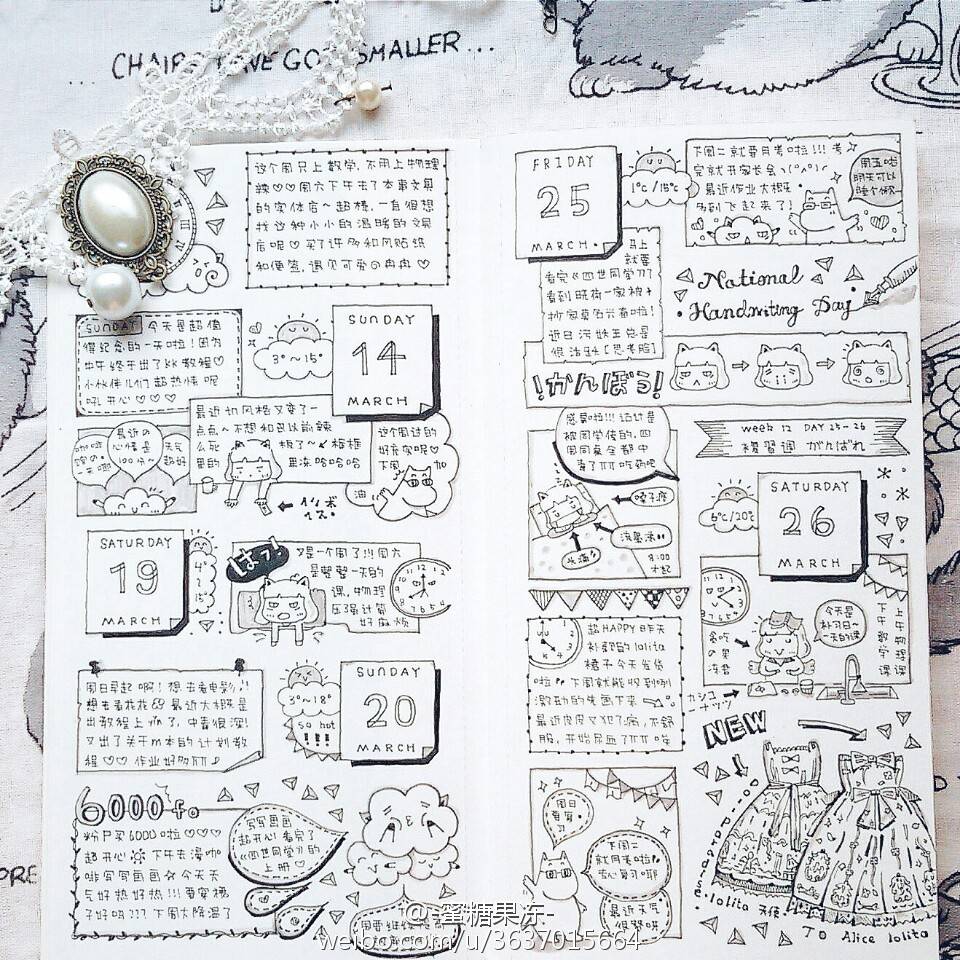 CHAIRS HAVE GOT SMALLER...
这个周只上数学，不用上物理
辣♡♡周六下午去了本事文具
的实体店~超棒，一直很想
找这种小小的温暖的文具
店呢♡买了许多和风贴纸
和便签，遇见可爱の冉冉♡
SUNDAY 今天是超值
得纪念的一天啦！因为
中午终于出了kk教程♡
小伙伴儿们超热情呢
吼开心♡♡♡
3°~15°
SUNDAY
14
MARCH
最近の
心情是
100分~
天气
超好
最近切风格又变了一
点点~不想和日以前辣
么死
板了~
里的
果冻哈哈哈
这个周过的
好充实呢♡
下周
加
油
SATURDAY
19
MARCH
4°~15°
はっ!
又是一个周了!!!周六
是整整一天的
课，物理
压强计算
好麻烦
SUNDAY
20
MARCH
3°~18°
so hot
!!!
周日早起啊！想去看电影♪!
想去看花花 最近大概是
出教程上yin了，中毒很深!
又出了关于m本的计划教
程♡♡作业好多ΠΠ
6000 fo.
粉尸买6000啦♡♡♡
超开心 下午去漫咖
啡写写画画☆今天天
气好热好热!!!要穿裙
子好吗???下周大降温了
写写画画
超开心 看完了
《四世同堂》的
上册♡
FRIDAY
25
MARCH
1°C/15°C
下周二就要月考啦!!!考
完就开家长会
最近作业大概
多到飞起来了!
周五啦
明天可以
睡个懒
马上
就要
看完《四世同堂》了
看到晓荷一家被
抄家莫名兴奋啦!
近日污妖王总是
很活跃[思考脸]
National
Handwriting Day
!かんぼう!
感冒啦!!!估计是
被同学传的，四
周同桌全都中
毒了ΠΠ吃药吧
嗓子疼
流鼻涕
头痛
8:00
week 12 DAY 25-26
複習週 がんばれ
SATURDAY
26
MARCH
5°C/20°C
今天是
补习日~
一天的课
上午物理课
下午数学课
贪吃の果冻君
カシューナッツ
超HAPPY昨天
补款的lolita
裙子今天发货
啦!!下周就能收到咧
激动的失画下来
最近皮皮又犯了病，不舒
服，开始尿血了ΠΠ
NEW
周日
下周二
就月考啦!!
安心复习耶
最近天气
很舒呀
doll-paradise-lolita 天使
TO Alice lolita
@-蜜糖果冻-
weibo.com/u/3637015664